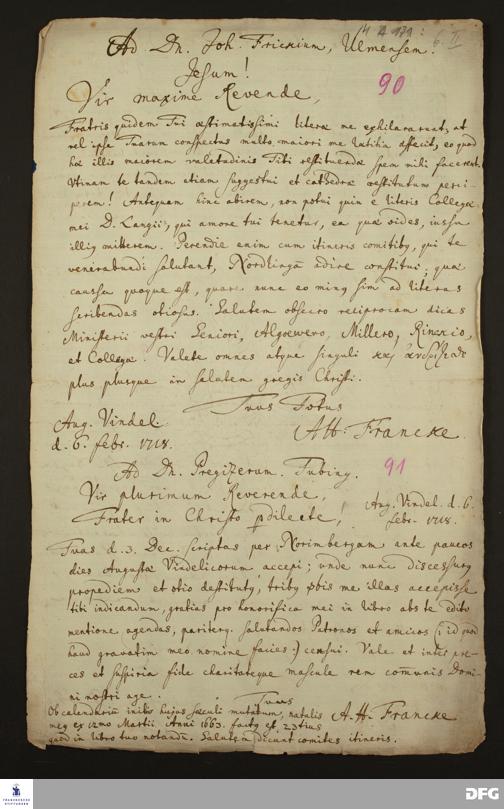 Ad Dn. Joh. Frickium, Ulmensem.
Jesum!
90
Vir maxime Reverende,
Fratris quidem Tui æstimatissimi literæ me exhilararunt, at
vel ipse Tuarum conspectus multo maiori me lætitia affecit, eo quod
hæ illis maiorem valetudinis Tibi restituendæ spem mihi facerent.
Utinam te tandem etiam suggestui et cathedræ restitutum
Antequam hinc abirem, non potui quin e literis Collegæ
mei D. Langii, qui amore tui tenetur, ea quæ vides, iussu
illius mitterem. Perendie enim cum itineris comitibus, qui te
venerabundi salutant, Nordlingam adire constitui, quæ
caussa quoque est, quare nunc eo minus sim ad literas
scribendas otiosus. Salutem obsecro reciprocam dicas
Ministerii vestri Seniori, Algoewero, Millero,
et Collegæ. Valete omnes atque singuli
plus plusque in salutem gregis Christi.
Tuus Totus
Aug. Vindel.
d. 6. febr. 1718.
AH: Francke.
Ad Dn. Pregizerum. Tubing.
91
Vir plurimum Reverende,
Frater in Christo dilecte,
Aug. Vindel. d. 6.
febr. 1718.
Tuas d. 3. Dec. scriptas per Norimbergam ante paucos
dies Augustæ Vindelicorum accepi; unde nunc discessurus
propediem et otio destitutus, tribus vbis me illas accepisse
tibi indicandum, gratias pro honorifica mei in libro abs te edito
mentione agendas, pariterq. salutandos Patronos et amicos (: id quod
haud gravatim meo nomine facies :) censui. Vale et inter pre-
ces et suspiria fide charitateque mascule rem communis Domi-
ni nostri age.
Tuus
A. H. Francke
Ob calendarium initio hujus sæculi mutatum, natalis
meus ex 12mo Martii Anni 1663. factus est 23tius
quod in libro tuo notandum. Salutem dicunt comites itineris.
FRANCKESCHE
STIFTUNGEN
DFG